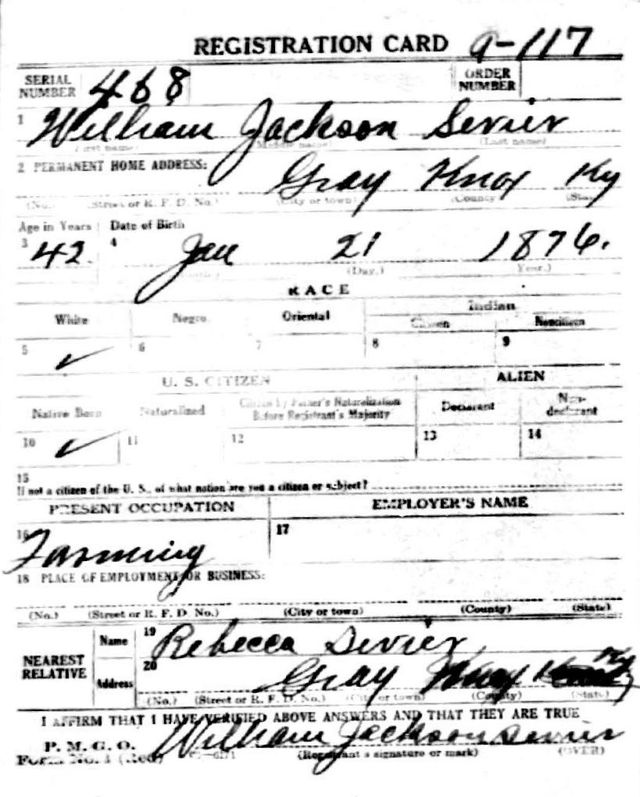 REGISTRATION CARD 9-117
SERIAL NUMBER 468 ORDER NUMBER
1 William Jackson Sevier
(First name) (Middle name) (Last name)
2 PERMANENT HOME ADDRESS:
Gray Knox Ky
(No.) (Street or R. F. D. No.) (City or town) (County) (State)
Age in Years Date of Birth
3 42 4 Jan 21 1876.
(Day.) (Year.)
RACE
White Negro Oriental Indian
Citizen Noncitizen
5 ✓ 6 7 8 9
U. S. CITIZEN ALIEN
Native Born Naturalized Citizen by Father's Naturalization Before Registrant's Majority Declarant Non-declarant
10 ✓ 11 12 13 14
15
If not a citizen of the U. S., of what nation are you a citizen or subject?
PRESENT OCCUPATION EMPLOYER'S NAME
16 Farming 17
18 PLACE OF EMPLOYMENT OR BUSINESS:
(No.) (Street or R. F. D. No.) (City or town) (County) (State)
NEAREST RELATIVE
Name 19 Rebecca Sevier
Address 20 Gray Knox Ky
(No.) (Street or R. F. D. No.) (City or town) (County) (State)
I AFFIRM THAT I HAVE VERIFIED ABOVE ANSWERS AND THAT THEY ARE TRUE
P. M. G. O.
Form No. 1 (Red) William Jackson Sevier
(Registrant's signature or mark) (OVER)